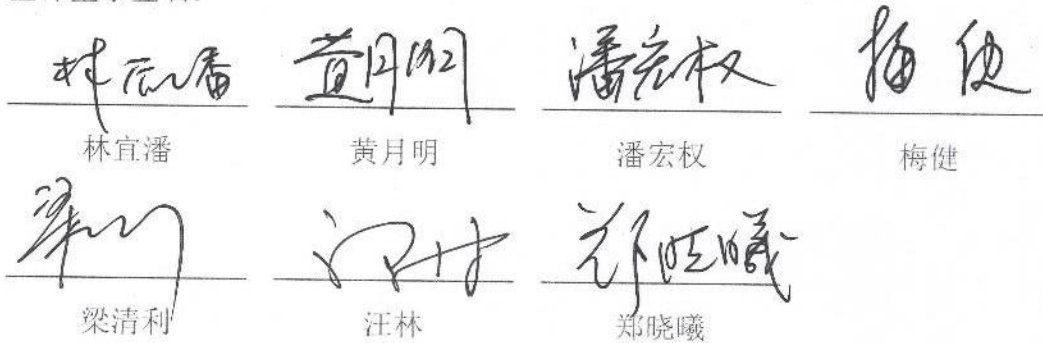 林宜潘 黄月明 潘宏权 梅健
林宜潘 黄月明 潘宏权 梅健
梁清利 汪林 郑晓曦
梁清利 汪林 郑晓曦